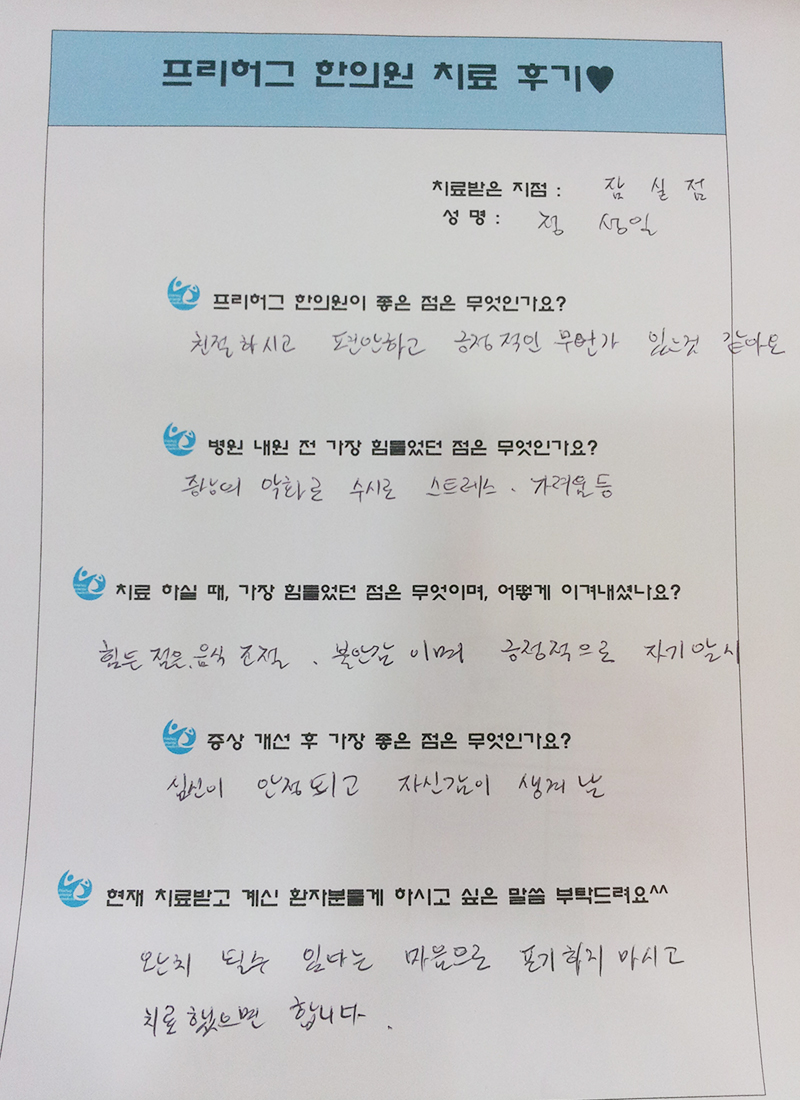 프리허그 한의원 치료 후기♥
치료받은 지점 : 잠 실 점
성 명 : 정 상일
프리허그 한의원이 좋은 점은 무엇인가요?
친절하시고 편안하고 긍정적인 무언가 있는것 같아요
병원 내원 전 가장 힘들었던 점은 무엇인가요?
증상의 악화로 수시로 스트레스. 가려움 등
치료 하실 때, 가장 힘들었던 점은 무엇이며, 어떻게 이겨내셨나요?
힘든 점은. 음식 조절. 불안감 이며 긍정적으로 자기암시
증상 개선 후 가장 좋은 점은 무엇인가요?
심신이 안정되고 자신감이 생겨 남
현재 치료받고 계신 환자분들게 하시고 싶은 말씀 부탁드려요^^
완치 될수 있다는 마음으로 포기하지 마시고
치료했으면 합니다.